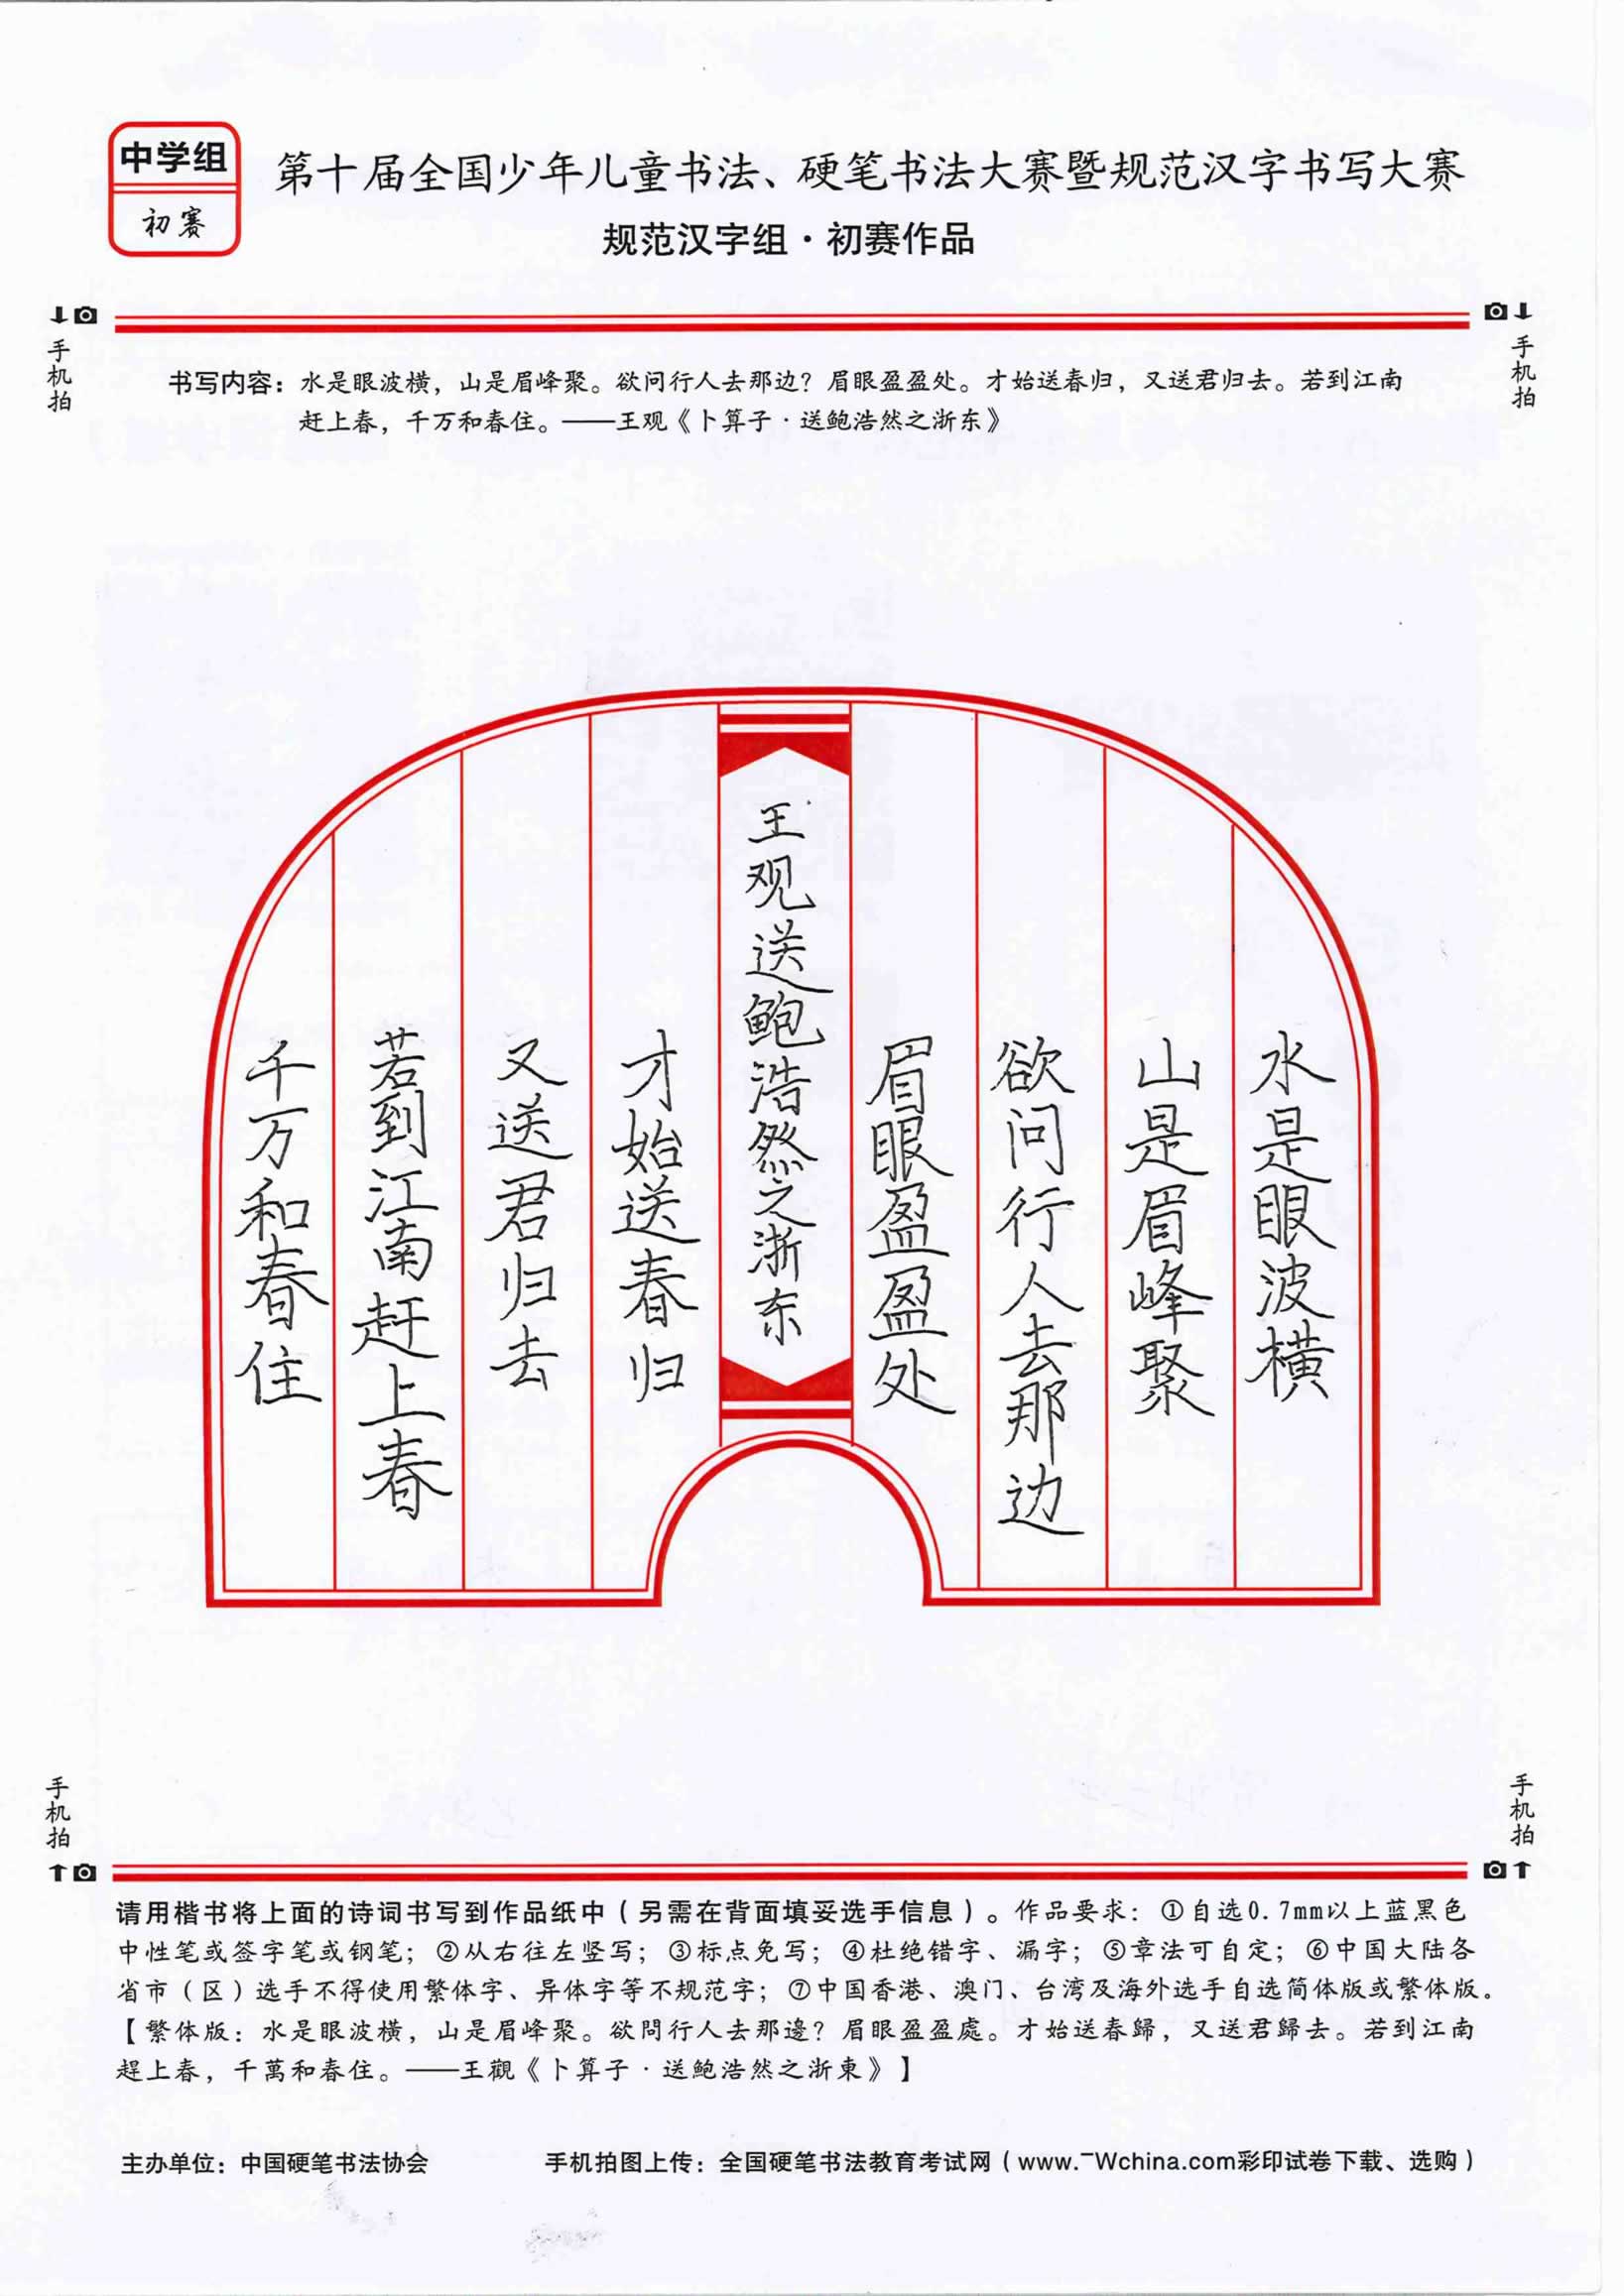 中学组
初赛
第十届全国少年儿童书法、硬笔书法大赛暨规范汉字书写大赛
规范汉字组·初赛作品
手机拍
手机拍
书写内容：水是眼波横，山是眉峰聚。欲问行人去那边？眉眼盈盈处。才始送春归，又送君归去。若到江南
赶上春，千万和春住。——王观《卜算子·送鲍浩然之浙东》
水是眼波横
山是眉峰聚
欲问行人去那边
眉眼盈盈处
王观送鲍浩然之浙东
才始送春归
又送君归去
若到江南赶上春
千万和春住
手机拍
手机拍
请用楷书将上面的诗词书写到作品纸中（另需在背面填妥选手信息）。作品要求：①自选0.7mm以上蓝黑色
中性笔或签字笔或钢笔；②从右往左竖写；③标点免写；④杜绝错字、漏字；⑤章法可自定；⑥中国大陆各
省市（区）选手不得使用繁体字、异体字等不规范字；⑦中国香港、澳门、台湾及海外选手自选简体版或繁体版。
【繁体版：水是眼波橫，山是眉峰聚。欲問行人去那邊？眉眼盈盈處。才始送春歸，又送君歸去。若到江南
趕上春，千萬和春住。——王觀《卜算子·送鮑浩然之浙東》】
主办单位：中国硬笔书法协会
手机拍图上传：全国硬笔书法教育考试网（www.Wchina.com彩印试卷下载、选购）